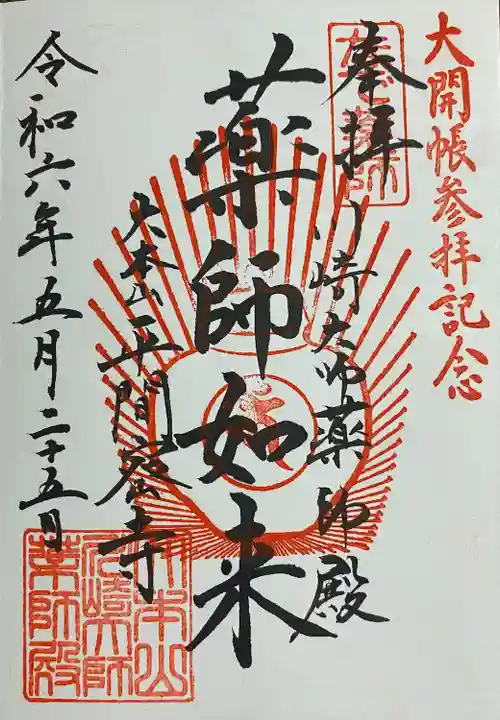 大開帳参拝記念
奉拝
川崎大師薬師殿
薬師如来
大本山平間寺
令和六年五月二十五日
大本山
川崎大師
薬師殿